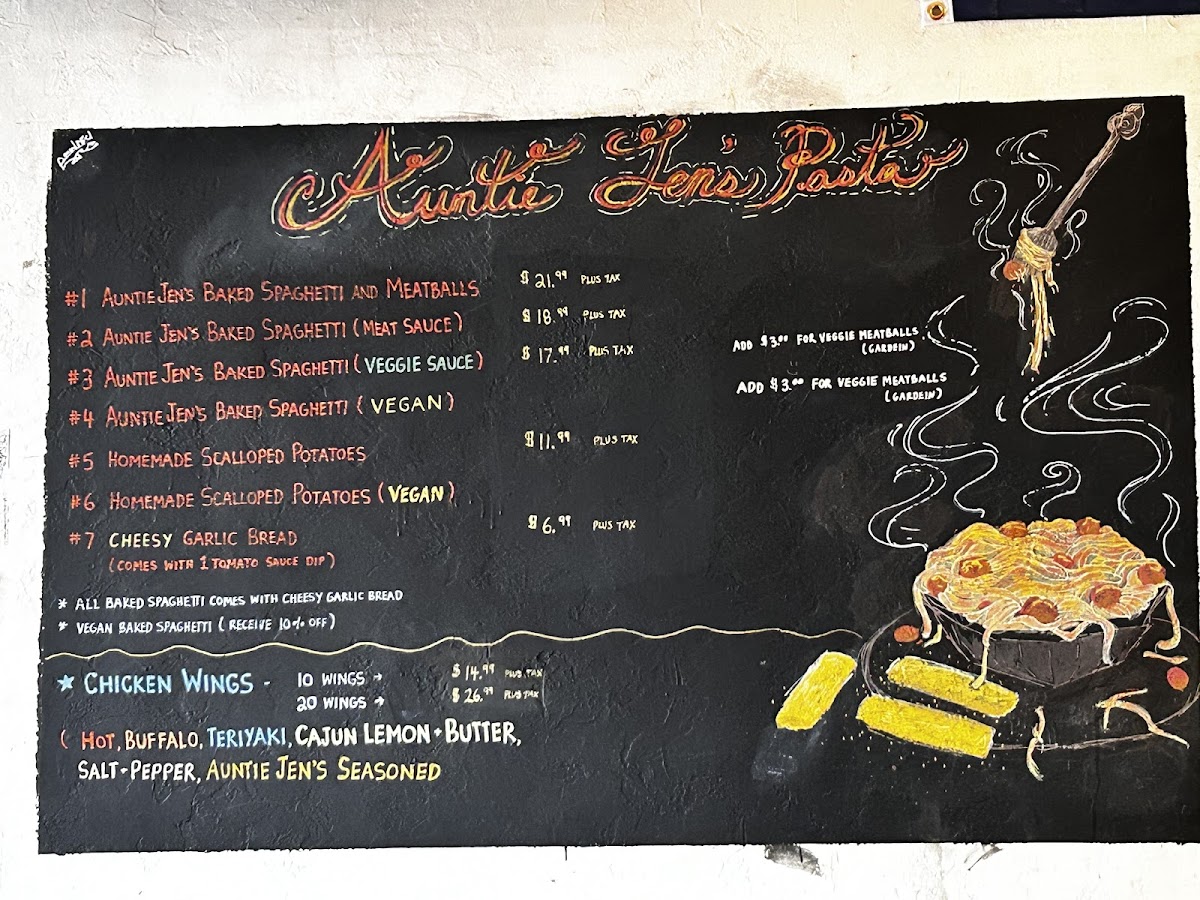 Auntie Jen's Pasta
#1 AUNTIE JEN'S BAKED SPAGHETTI AND MEATBALLS $21.99 PLUS TAX
#2 AUNTIE JEN'S BAKED SPAGHETTI (MEAT SAUCE) $18.99 PLUS TAX
#3 AUNTIE JEN'S BAKED SPAGHETTI (VEGGIE SAUCE) $17.99 PLUS TAX ADD $3.00 FOR VEGGIE MEATBALLS
(GARDEIN)
#4 AUNTIE JEN'S BAKED SPAGHETTI (VEGAN) ADD $3.00 FOR VEGGIE MEATBALLS
(GARDEIN)
#5 HOMEMADE SCALLOPED POTATOES $11.99 PLUS TAX
#6 HOMEMADE SCALLOPED POTATOES (VEGAN)
#7 CHEESY GARLIC BREAD $6.99 PLUS TAX
(COMES WITH 1 TOMATO SAUCE DIP)
* ALL BAKED SPAGHETTI COMES WITH CHEESY GARLIC BREAD
* VEGAN BAKED SPAGHETTI (RECEIVE 10% OFF)
★ CHICKEN WINGS - 10 WINGS → $14.99 PLUS TAX
20 WINGS → $26.99 PLUS TAX
( HOT, BUFFALO, TERIYAKI, CAJUN LEMON + BUTTER,
SALT + PEPPER, AUNTIE JEN'S SEASONED